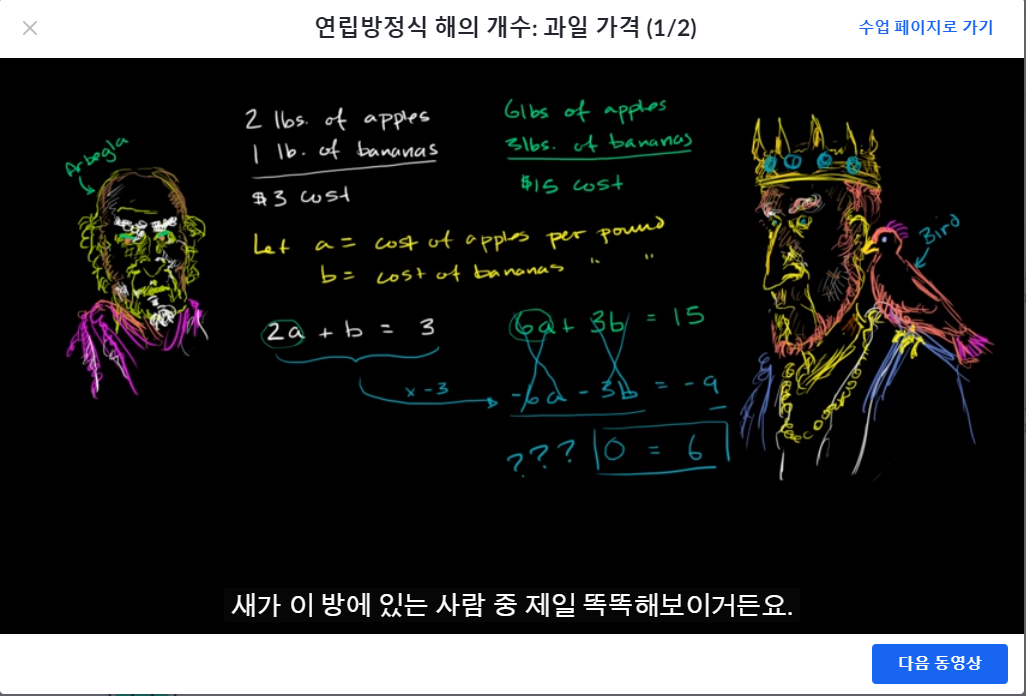 연립방정식 해의 개수: 과일 가격 (1/2)
수업 페이지로 가기
Arbegla
2 lbs. of apples
1 lb. of bananas
$3 cost
6lbs of apples
3lbs. of bananas
$15 cost
Let a = cost of apples per pound
b = cost of bananas " "
Bird
2a + b = 3
6a + 3b = 15
x -3
-6a - 3b = -9
??? 0 = 6
새가 이 방에 있는 사람 중 제일 똑똑해보이거든요.
다음 동영상